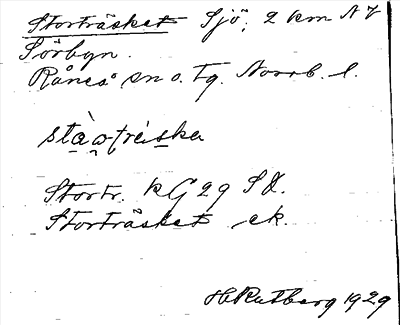 Storträsket Sjö, 2 km NV
Sörbyn.
Råneå sn o. Tg. Norrb. l.
Stortr. kG 29 SV.
Storträsket ek.
H Rutberg 1929